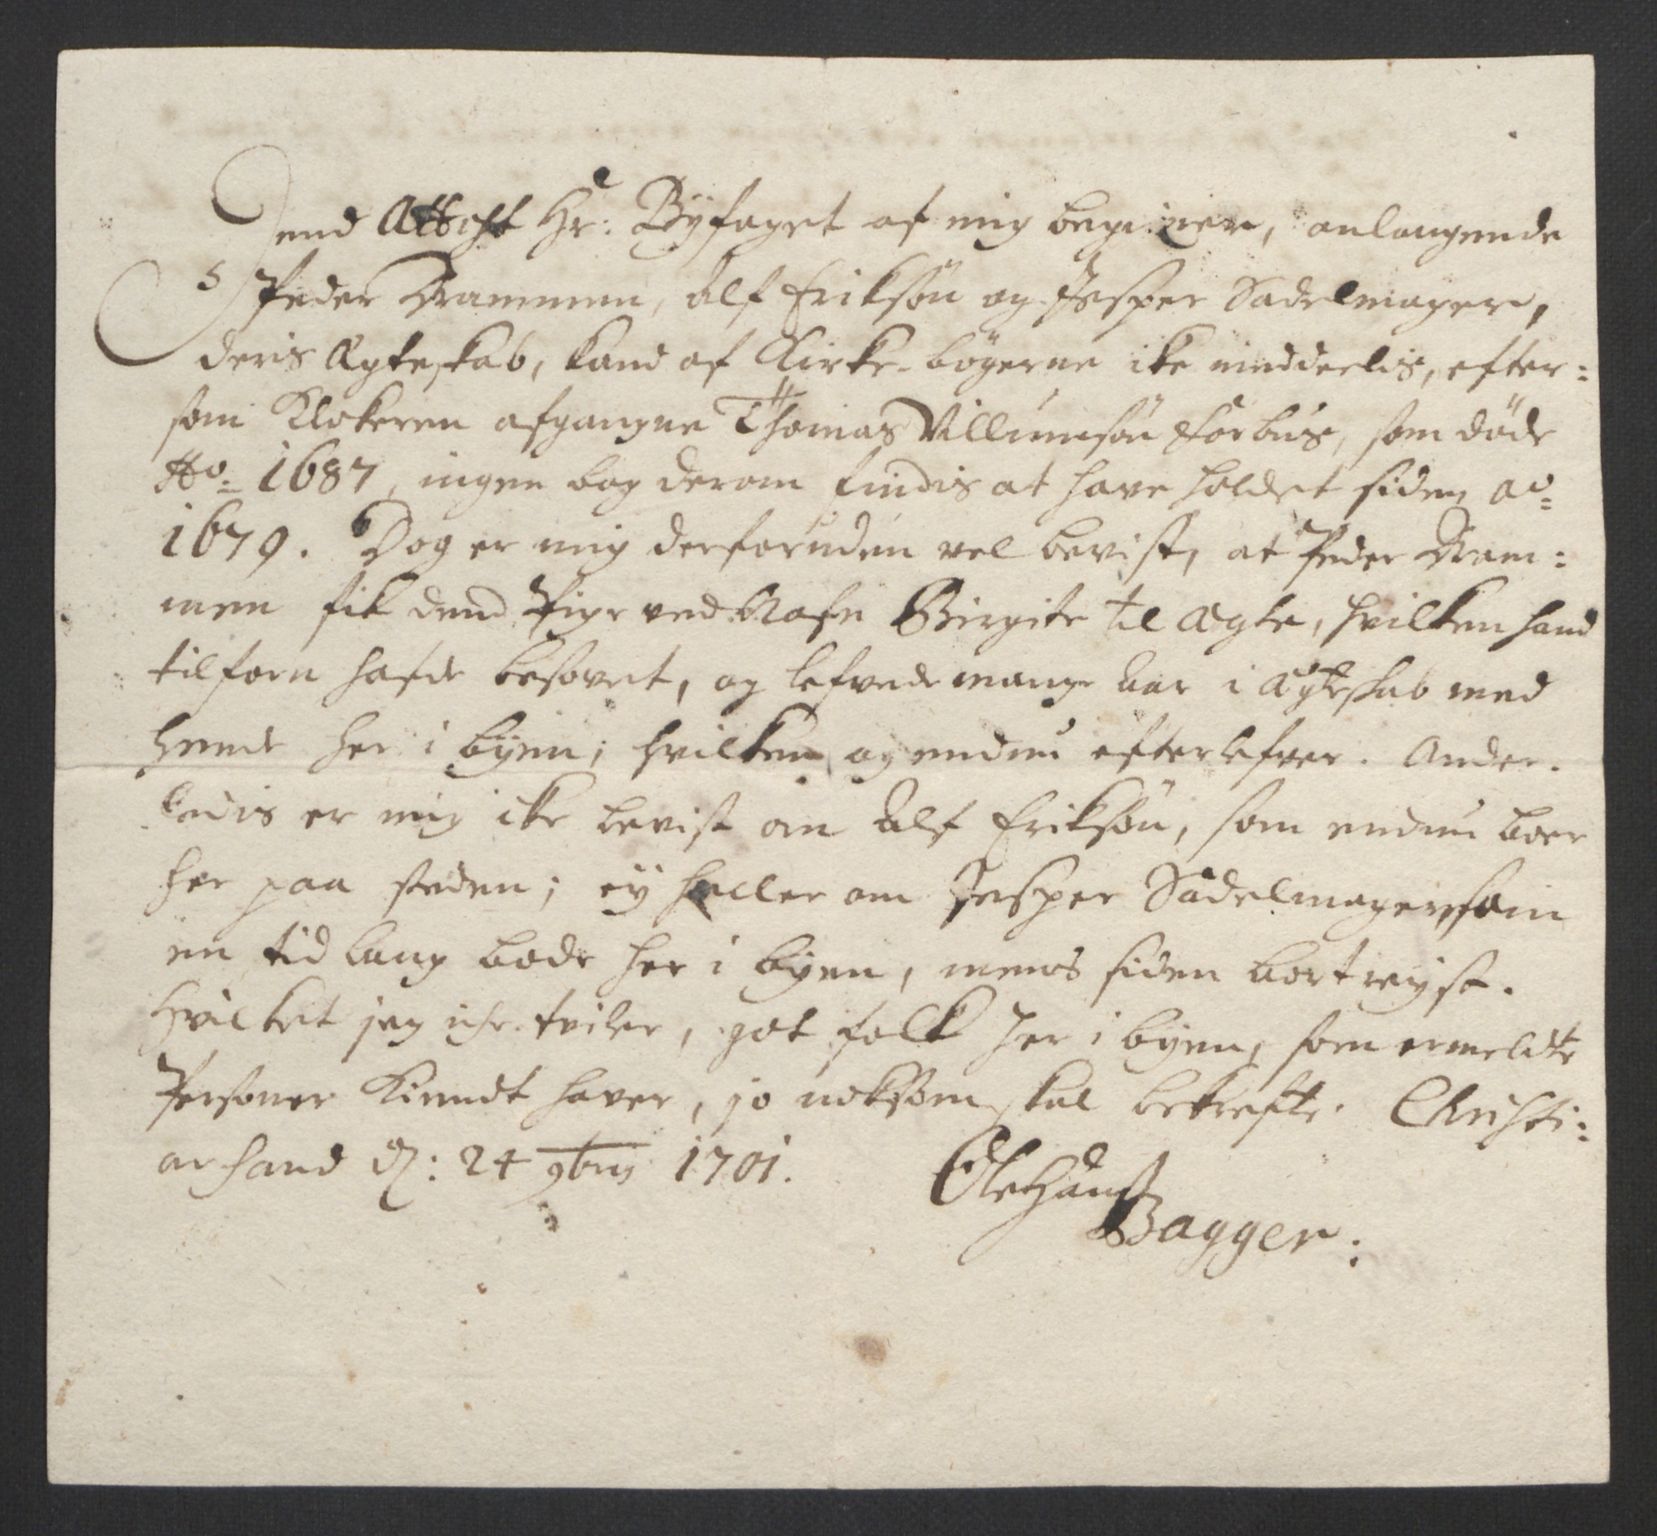 Dend Attest Hr: Byfaget af mig begierer, anlangende
Peder Drammen, Alf Eriksøn og Jesper Sadelmager,
deris Ægteskab, kand af Kirke-bøgerne ike meddeelis, efter:
som Klokeren afgangne Thomas Villumsøn Forbus, som døde
Ao: 1687, ingen bog derom findis at have holdet siden ao:
1679. Dog er mig desforuden vel bevist, at Peder Dram:
men fik dend Pige ved Nafn Birgite til Ægte, hvilken hand
tilforn hafde besovet, og lefvede mange Aar i Ægteskab med
hende her i byen; hvilken og endnu efterlefver. Ander-
ledis er mig ike bevist om Alf Eriksøn, som endnu boer
her paa steden; ey heller om Jesper Sadelmager, som
en tid lang bode her i byen, mens siden bortreyst.
Hvilket jeg ike tviler, got folk her i byen, som ermeldte
Personer Kiendt haver, jo noksom skal bekrefte. Christi:
ansand d: 24 9bris 1701.
Ole Hansø
Bagger: